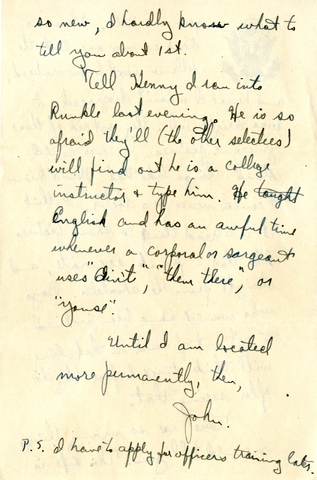 so new, I hardly know what to
tell you about 1st.
Tell Henny I ran into
Runkle last evening. He is so
afraid they'll (the other selectees)
will find out he is a college
instructor + type him. He taught
English and has an awful time
whenever a corporal or sargeant
uses "ain't", "them there", or
"youse".
Until I am located
more permanently, then,
John.
P.S. I have to apply for officers training later.